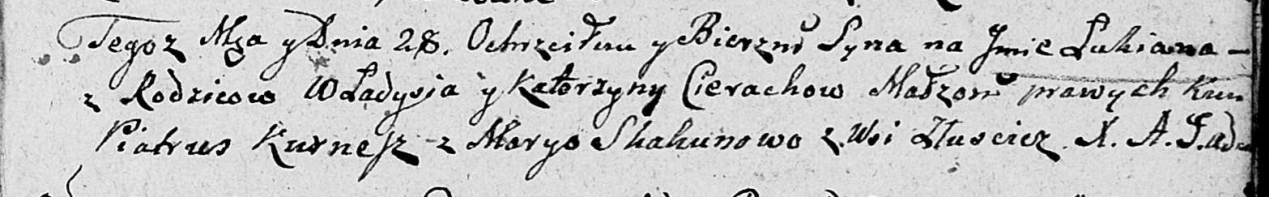 Tegoż Mca y Dnia 28. Ochrzciłem y Bierzm Syna na Jmie Łukiana
z Rodzicow Władysia y Katerzyny Cierachow Małżon prawych Kum
Piatrus Kurnesz z Maryo Skakunowo z Wsi Tłuscicz X. A. J.